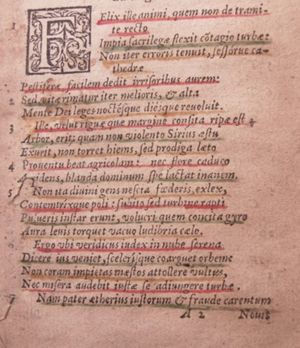 1 FElix ille animi, quem non de tramite recto
Impia sacrilegæ flexit cõtagio turbæ:
Non iter erroris tenuit, sessorve cathedræ
Pestiferæ facilem dedit irrisoribus aurem:
2 Sed vitæ rimatur iter melioris, & alta
Mente Dei leges noctésque diésque reuoluit.
3 Ille, velut riguæ quæ margine consita ripæ est
Arbor, erit: quam non violento Sirius æstu
Exurit, non torret hiems, sed prodiga læto
4 Prouentu beat agricolam: nec flore caduco
Arridens, blanda dominum spe lactat inanem.
5 Non ita diuini gens nescia fœderis, exlex,
Contemtrixque poli: subito sed turbine rapti
Pulueris instar erunt, volucri quem concita gyro
Aura leuis torquet vacuo ludibria cælo.
6 Ergo vbi veridicus iudex in nube serena
Dicere ius veniet, scelerisque coarguet orbem
Non coram impietas mæstos attollere vultus,
Nec misera audebit iustæ se adiungere turbæ.
7 Nam pater ætherius iustorum & fraude carentum
A 2 Nouit